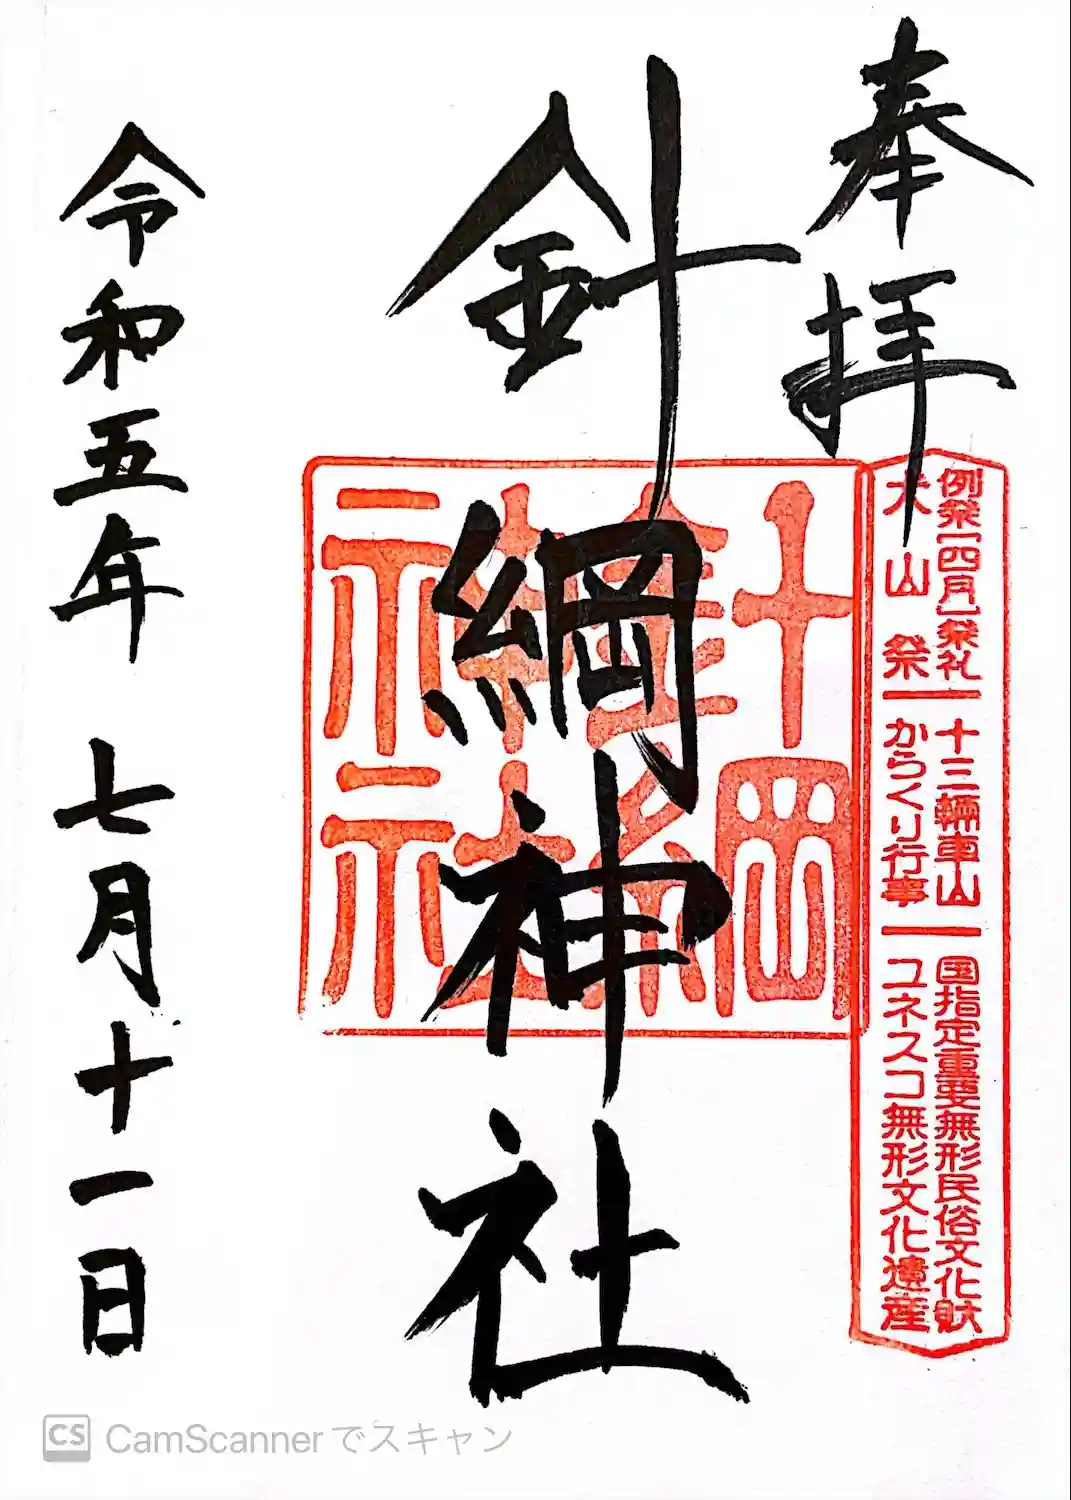 奉拝
例祭[四月]祭礼 十三輛車山 国指定重要無形民俗文化財
犬山祭 からくり行事 ユネスコ無形文化遺産
針綱神社
針綱神社
令和五年 七月十一日
CS CamScannerでスキャン